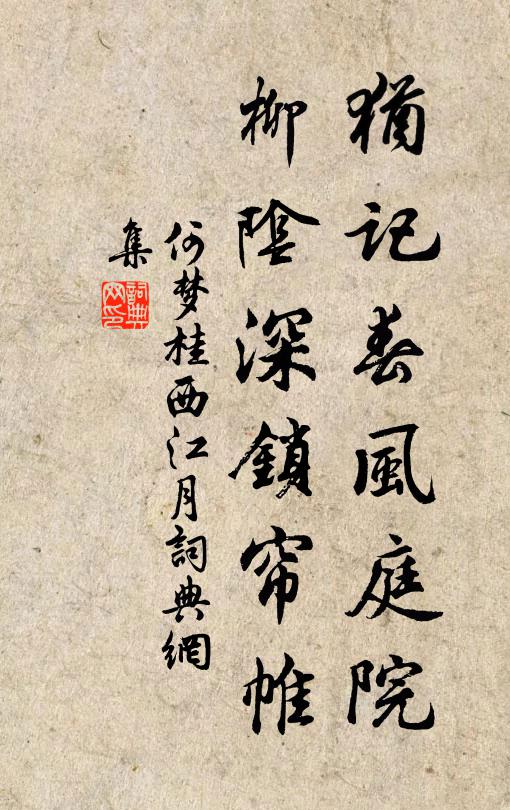 猶記春風庭院
柳陰深鎖帘帷
何梦桂西江月詞典網
集
詞典网印